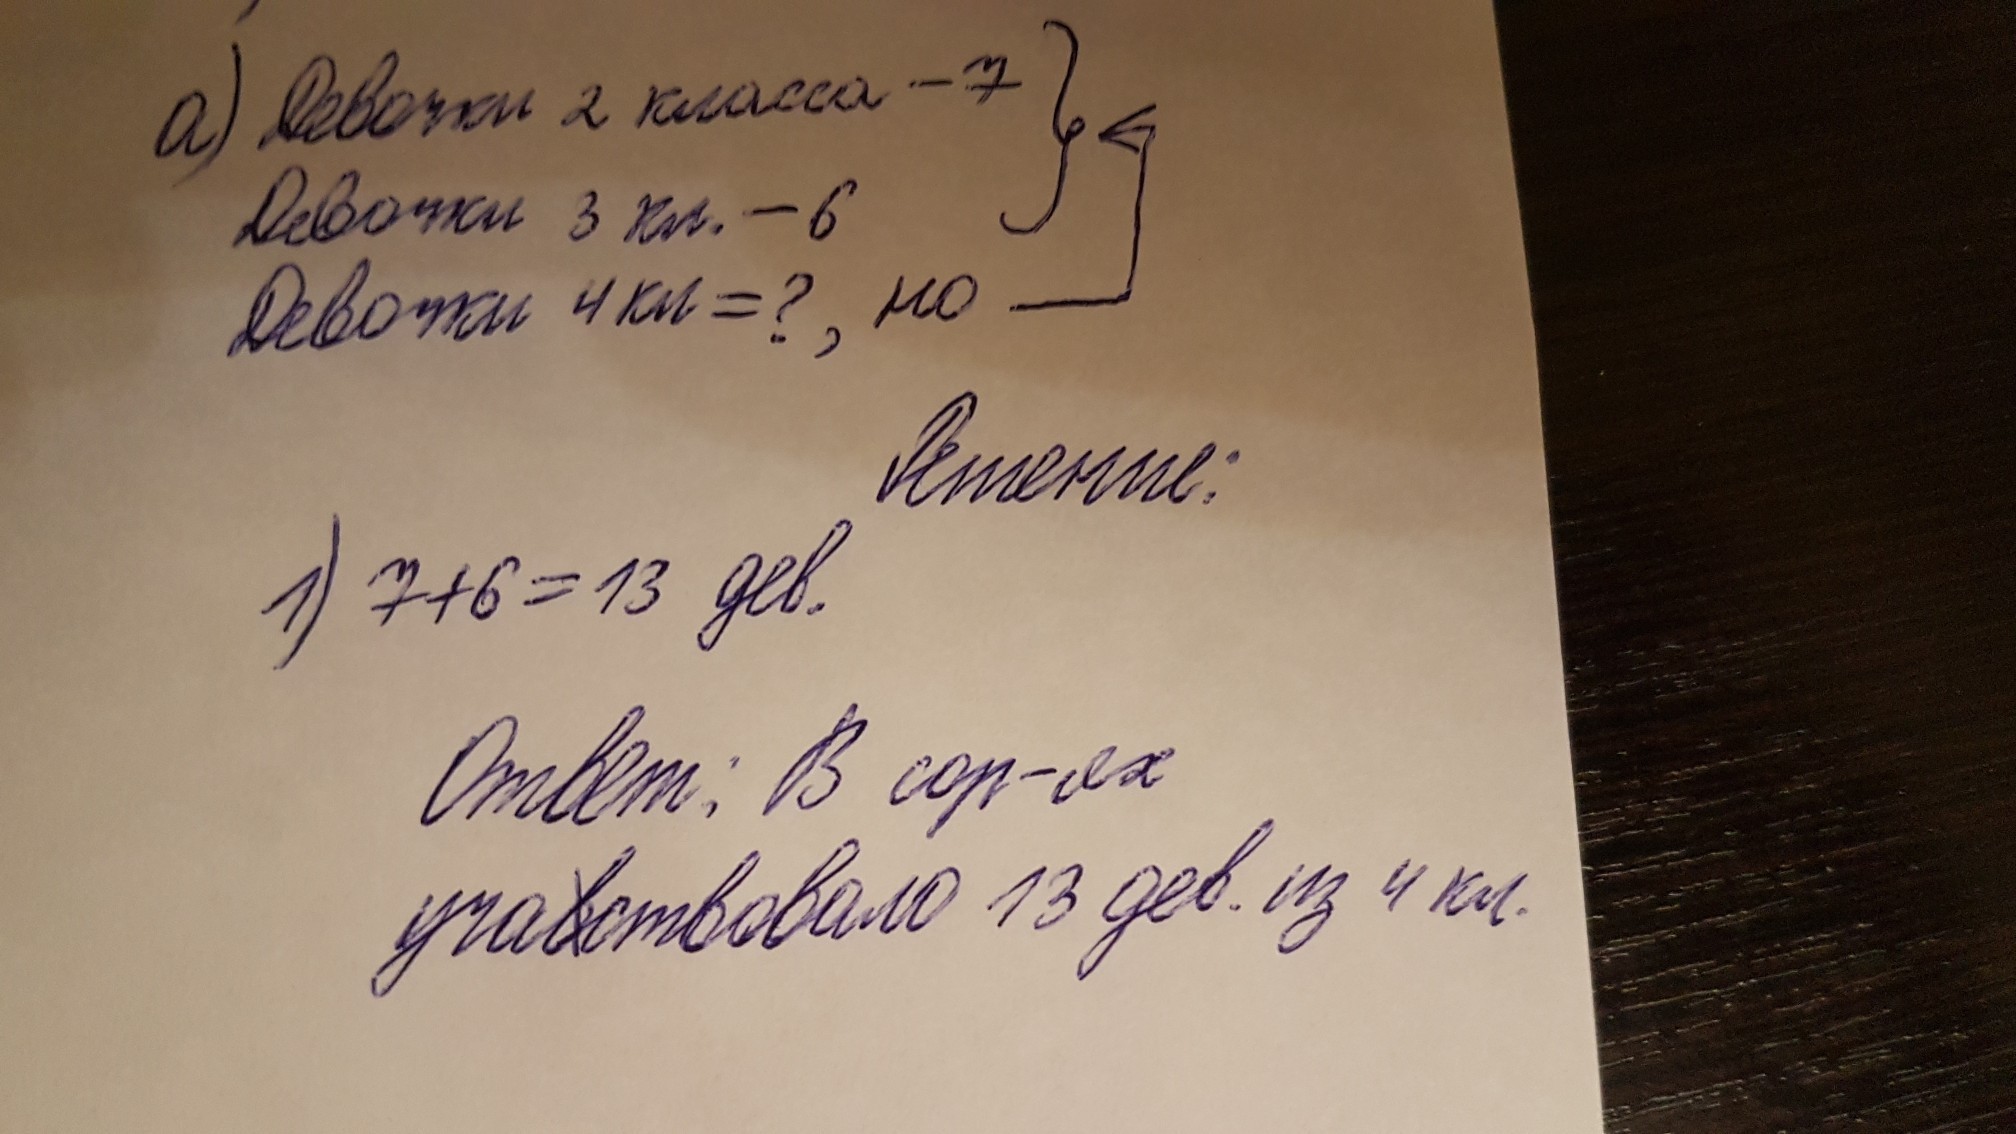 а) Девочки 2 класса – 7
Девочки 3 кл. – 6
Девочки 4 кл = ?, но
Решение:
1) 7+6=13 дев.
Ответ: В сор-ях
участвовало 13 дев. из 4 кл.